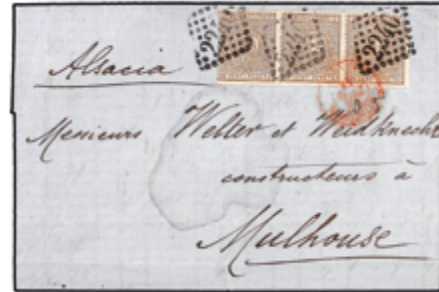 2240 2240 2240
Alsacia
Messieurs Welter et Weidknecht
constructeurs à
Mulhouse